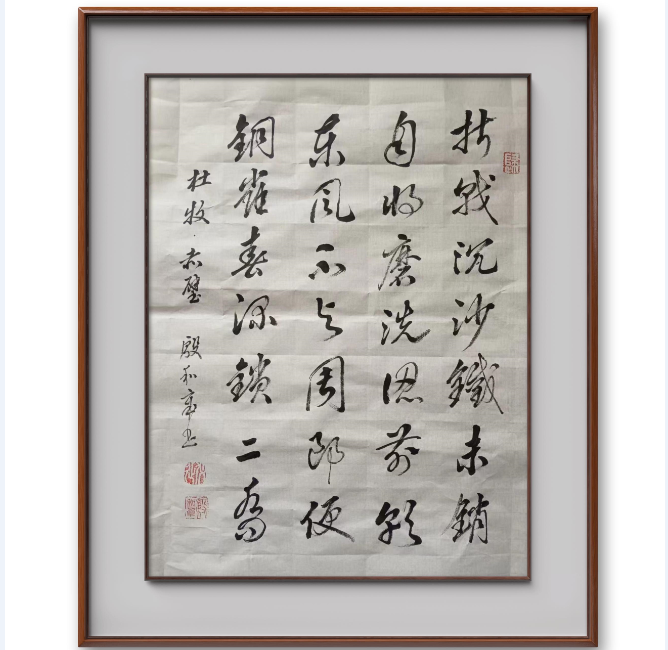 折戟沉沙鐵未銷
自将磨洗認前朝
东风不与周郎便
銅雀春深鎖二喬
杜牧·赤壁 殷和书